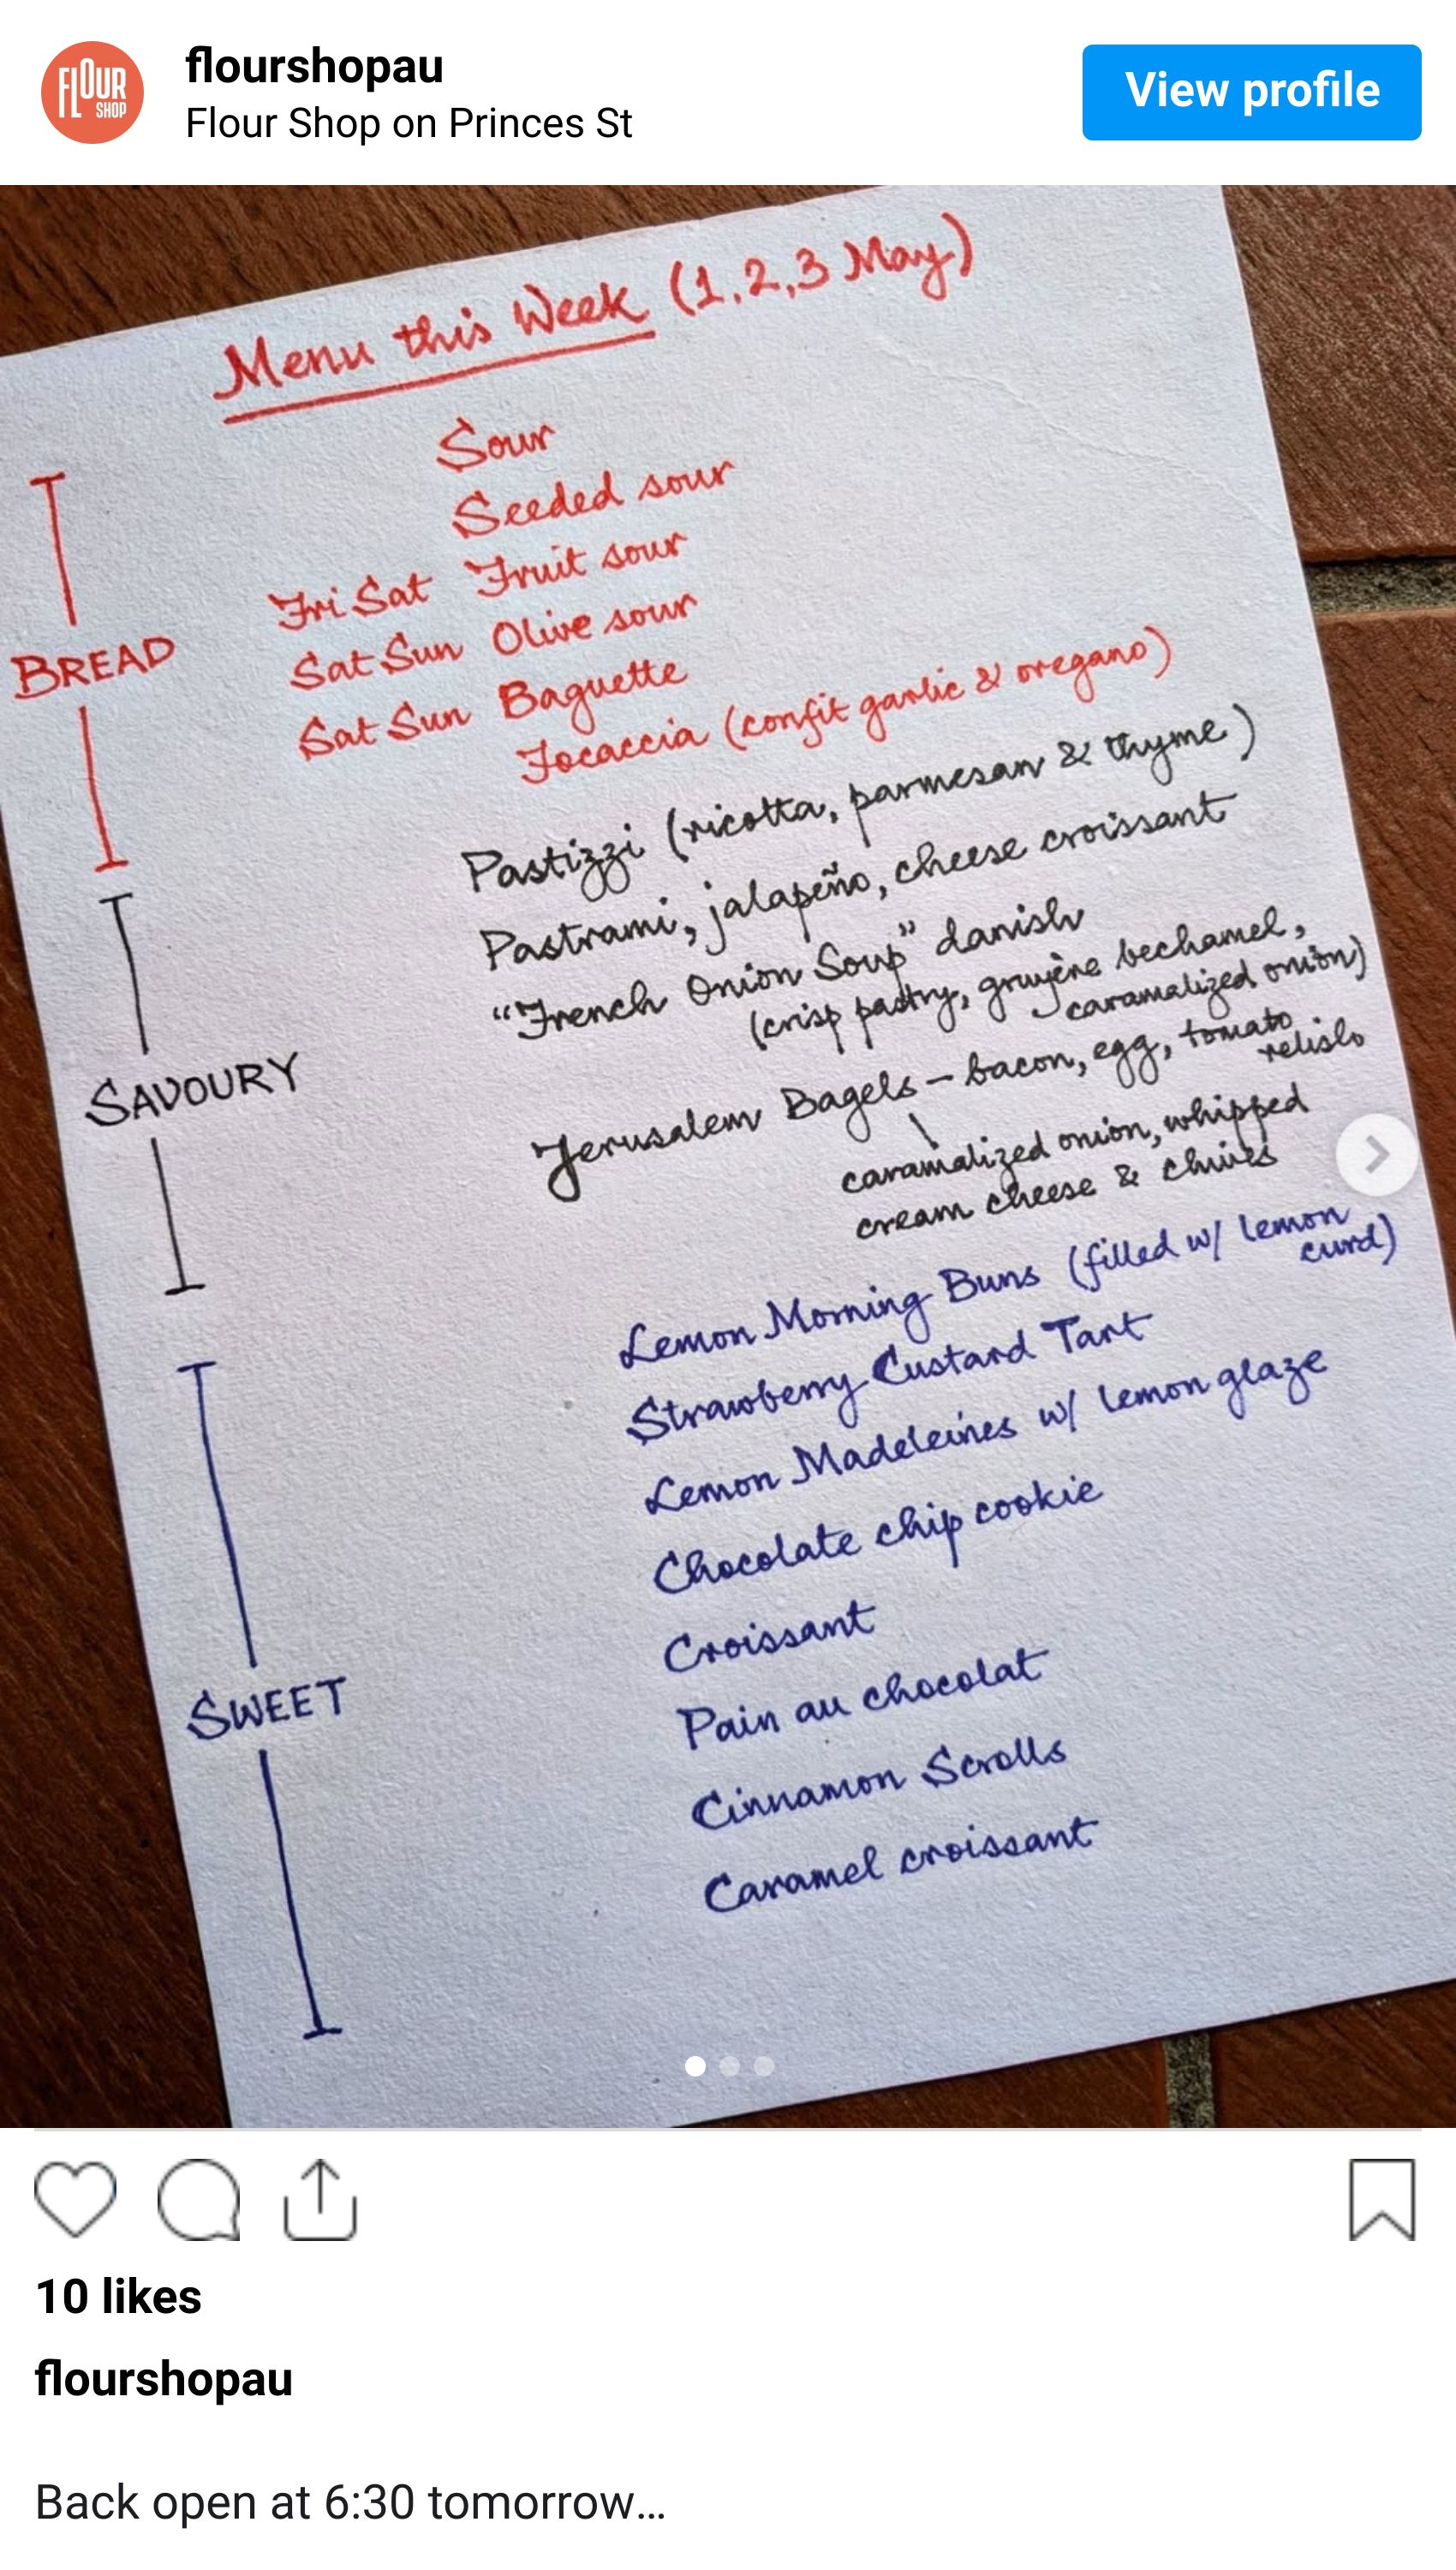 FLOUR
SHOP
flourshopau
Flour Shop on Princes St
View profile
Menu this Week (1,2,3 May)
BREAD
Sour
Seeded sour
Fri Sat Fruit sour
Sat Sun Olive sour
Sat Sun Baguette
Focaccia (confit garlic & oregano)
SAVOURY
Pastizzi (ricotta, parmesan & thyme)
Pastrami, jalapeño, cheese croissant
"French Onion Soup" danish
(crisp pastry, gruyère bechamel,
caramalized onion)
Jerusalem Bagels – bacon, egg, tomato
relish
caramalized onion, whipped
cream cheese & chives
SWEET
Lemon Morning Buns (filled w/ lemon
curd)
Strawberry Custard Tart
Lemon Madeleines w/ lemon glaze
Chocolate chip cookie
Croissant
Pain au chocolat
Cinnamon Scrolls
Caramel croissant
10 likes
flourshopau
Back open at 6:30 tomorrow...